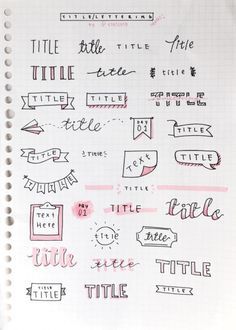 TITLE/LETTERING
TITLE title TITLE title
TITLE title TITLE
TITLE TITLE TITLE
title DAY 01
TITLE TITLE TEXT TITLE
TITLE
TEXT HERE DAY 01 TITLE title
title title
title title TITLE
TITLE TITLE TITLE